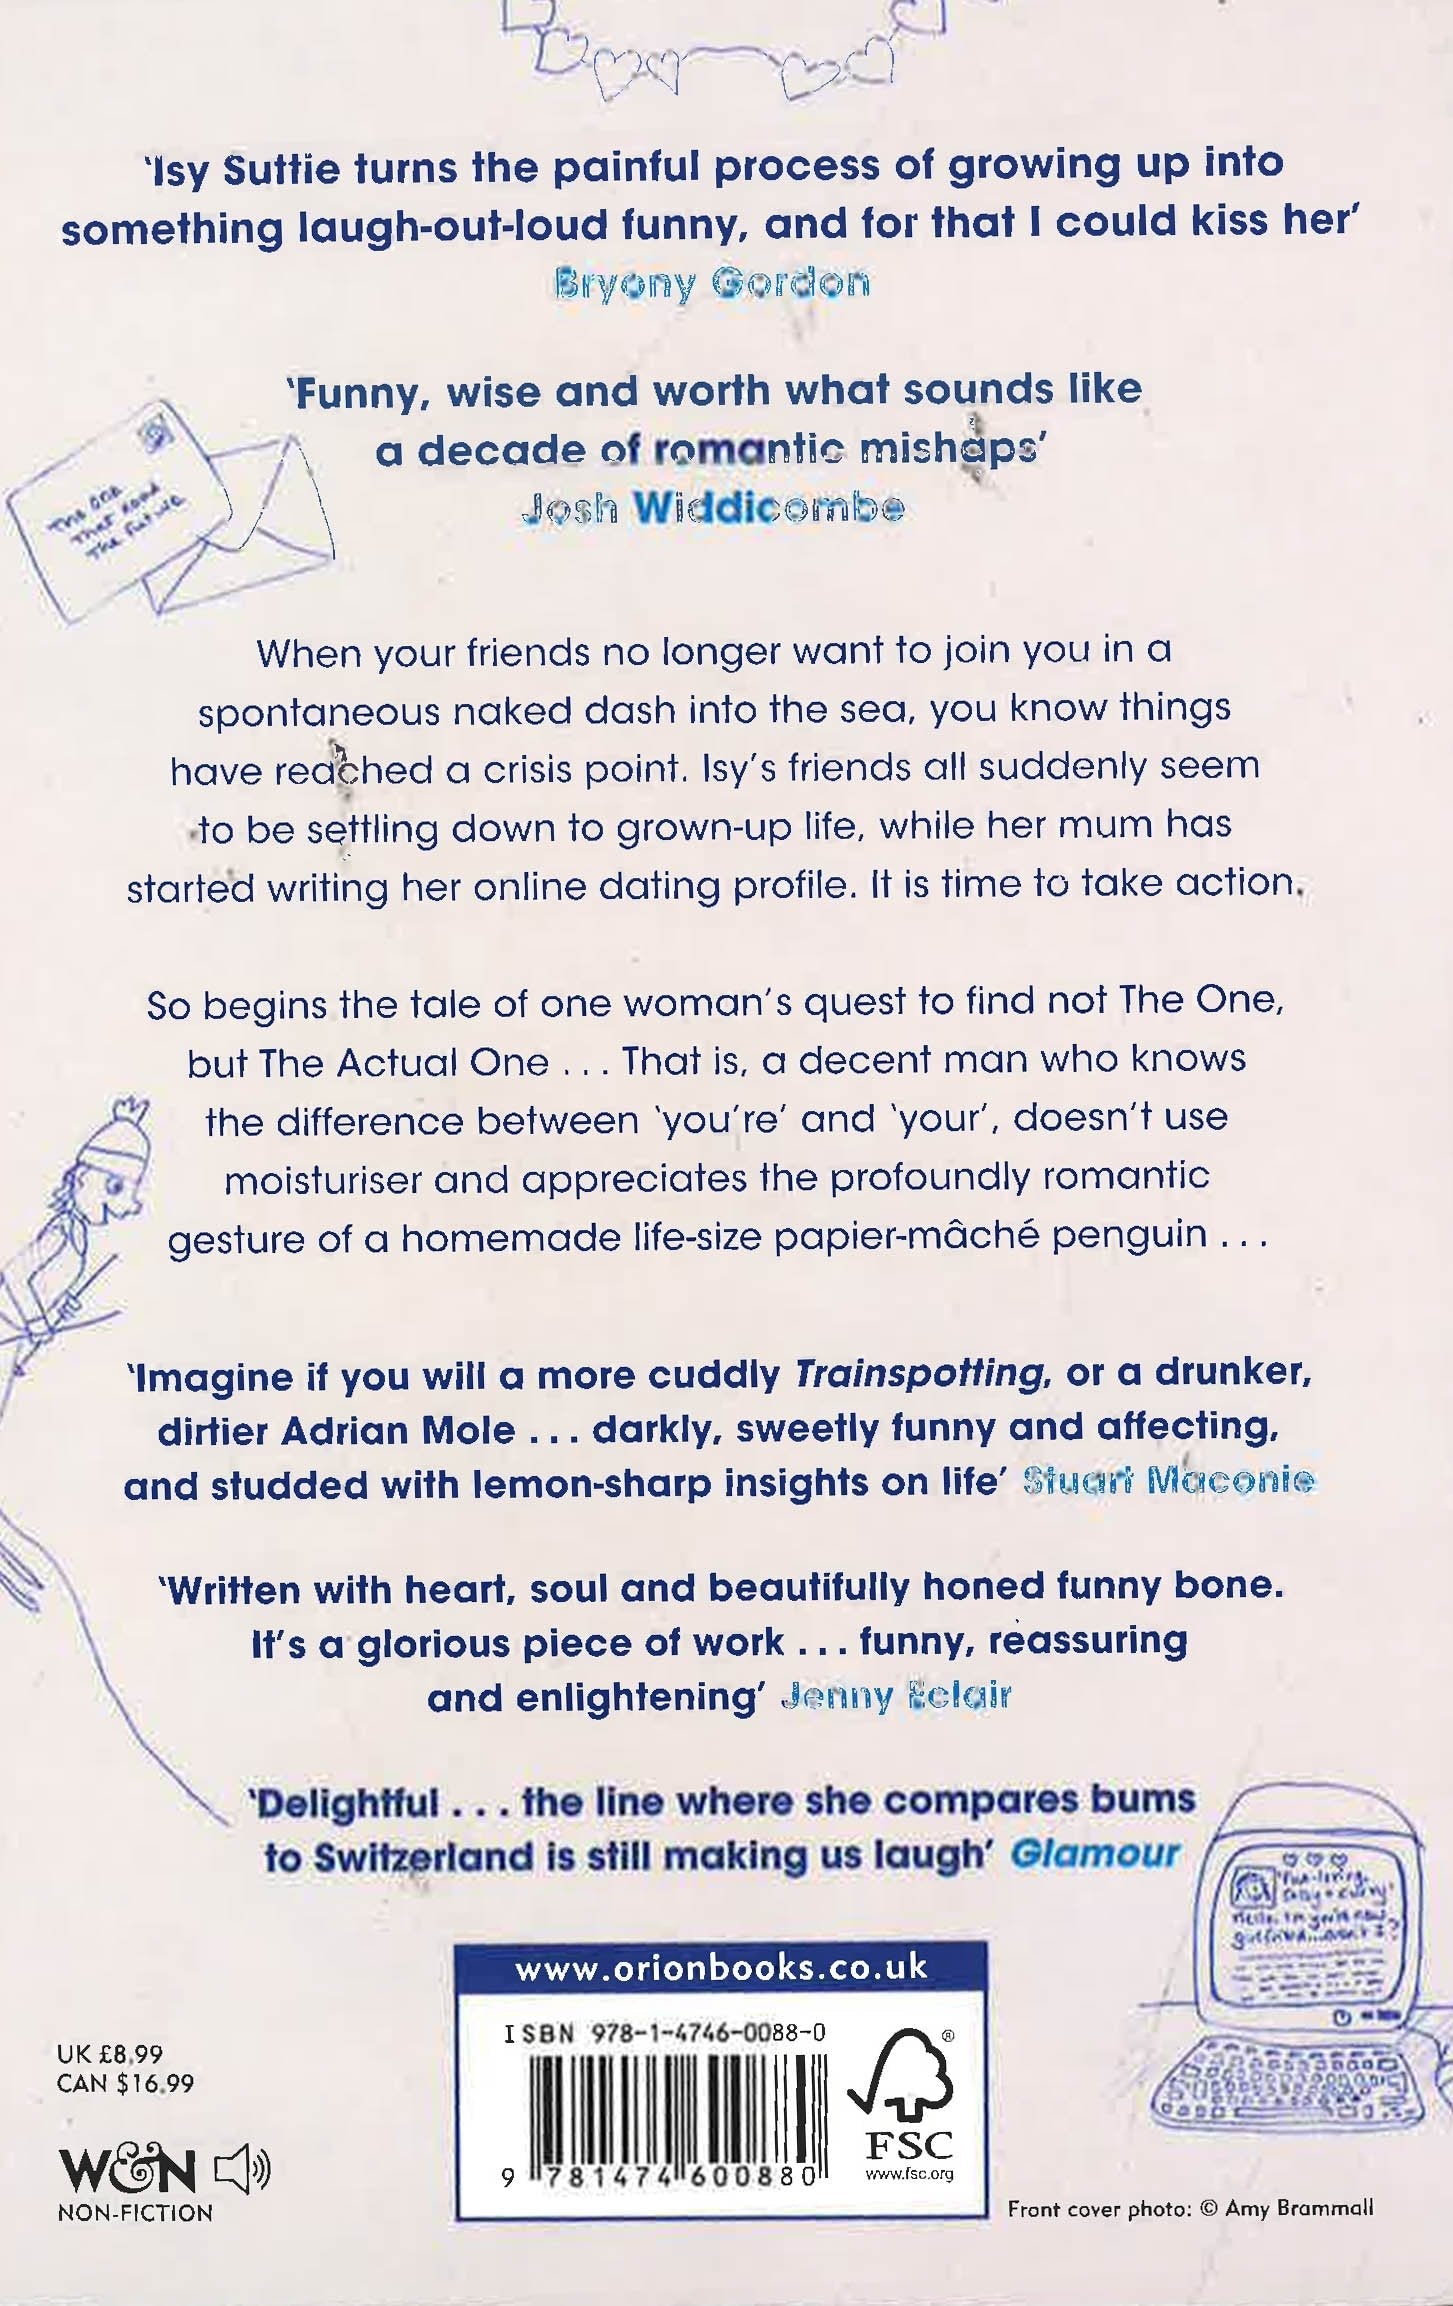 'Isy Suttie turns the painful process of growing up into
something laugh-out-loud funny, and for that I could kiss her'
Bryony Gordon
'Funny, wise and worth what sounds like
a decade of romantic mishaps'
Josh Widdicombe
The one
that read
the future
When your friends no longer want to join you in a
spontaneous naked dash into the sea, you know things
have reached a crisis point. Isy's friends all suddenly seem
to be settling down to grown-up life, while her mum has
started writing her online dating profile. It is time to take action.
So begins the tale of one woman's quest to find not The One,
but The Actual One ... That is, a decent man who knows
the difference between 'you're' and 'your', doesn't use
moisturiser and appreciates the profoundly romantic
gesture of a homemade life-size papier-mâché penguin ...
'Imagine if you will a more cuddly Trainspotting, or a drunker,
dirtier Adrian Mole ... darkly, sweetly funny and affecting,
and studded with lemon-sharp insights on life' Stuart Maconie
'Written with heart, soul and beautifully honed funny bone.
It's a glorious piece of work ... funny, reassuring
and enlightening' Jenny Eclair
'Delightful ... the line where she compares bums
to Switzerland is still making us laugh' Glamour
www.orionbooks.co.uk
ISBN 978-1-4746-0088-0
9 781474 600880
®
FSC
www.fsc.org
UK £8.99
CAN $16.99
W&N
NON-FICTION
Front cover photo: © Amy Brammall